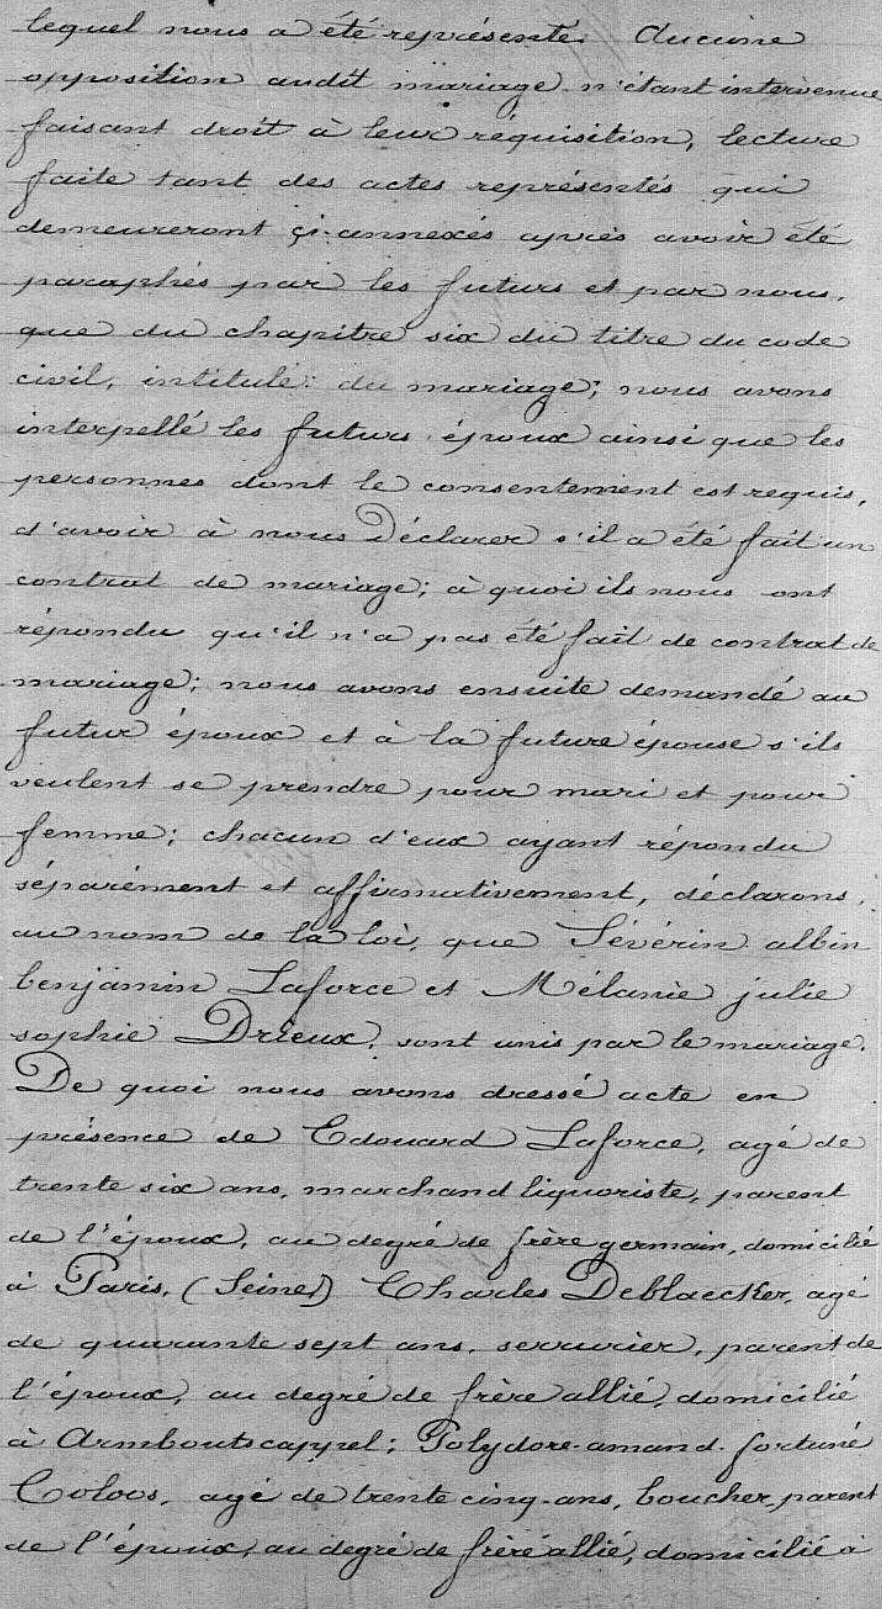 lequel nous a été représenté. Aucune
opposition audit mariage n'étant intervenue
faisant droit à leur réquisition, lecture
faite tant des actes représentés qui
demeureront çi-annexés après avoir été
paraphés par les futurs et par nous,
que du chapitre six du titre du code
civil, intitulé: du mariage; nous avons
interpellé les futurs époux ainsi que les
personnes dont le consentement est requis,
d'avoir à nous Déclarer s'il a été fait un
contrat de mariage; à quoi ils nous ont
répondu qu'il n'a pas été fait de contrat de
mariage; nous avons ensuite demandé au
futur époux et à la future épouse s'ils
veulent se prendre pour mari et pour
femme; chacun d'eux ayant répondu
séparément et affirmativement, déclarons,
au nom de la loi, que Sévérin albin
benjamin Laforce et Mélanie julie
sophie Drieux, sont unis par le mariage.
De quoi nous avons dressé acte en
présence de Edouard Laforce, agé de
trente six ans, marchand liquoriste, parent
de l'époux, au degré de frère germain, domicilié
à Paris, (Seine) Charles Deblaecker, agé
de quarante sept ans, serrurier, parent de
l'époux, au degré de frère allié, domicilié
à Armboutscappel; Polydore-amand-fortuné
Coloos, agé de trente cinq-ans, boucher, parent
de l'époux, au degré de frère allié, domicilié à